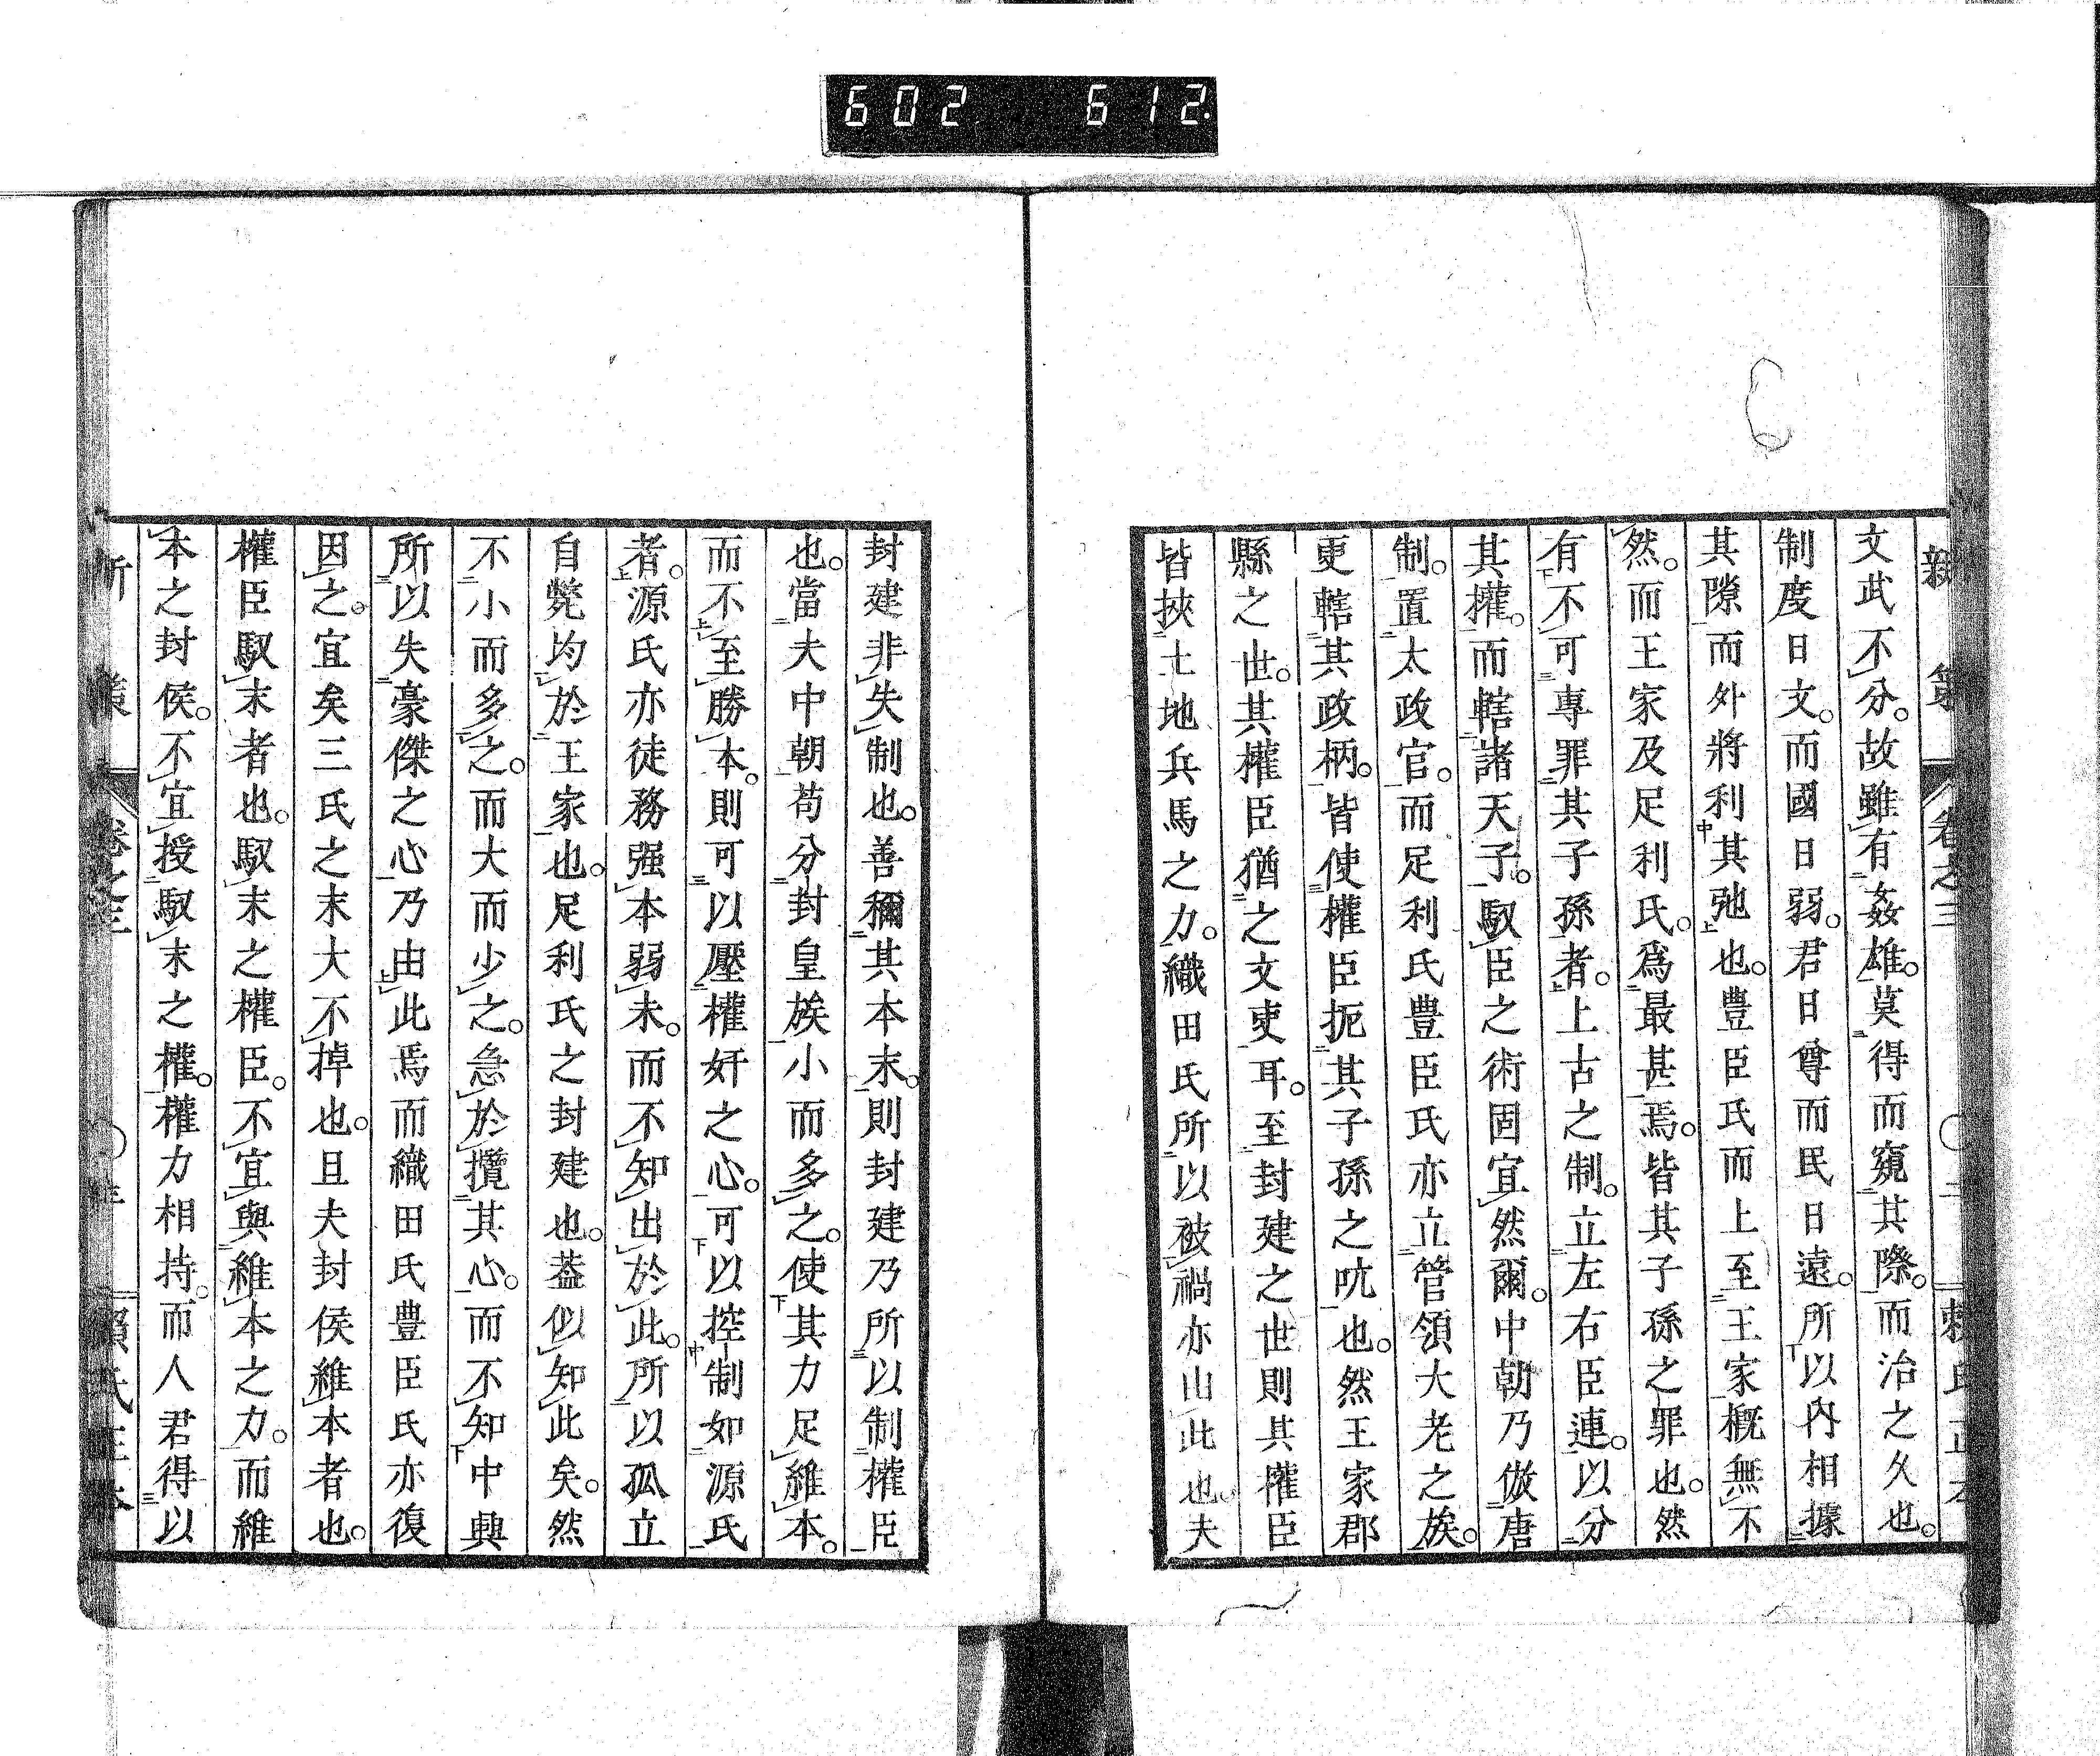 602 612
新策 卷之三 〇二 賴氏正本
文武不分。故雖有姦雄。莫得而窺其際。而治之久也。
制度日文。而國日弱。君日尊而民日遠。所以内相據
其隙而外將利其弛也。豊臣氏而上至王家概無不
然。而王家及足利氏。爲最甚焉。皆其子孫之罪也。然
有不可專罪其子孫者。上古之制。立左右臣連。以分
其權。而轄諸天子。馭臣之術固宜然爾。中朝乃倣唐
制。置太政官。而足利氏豊臣氏亦立管領大老之族。
更轄其政柄。皆使權臣扼其子孫之吭也。然王家郡
縣之世。其權臣猶之文吏耳。至封建之世則其權臣
皆挾土地兵馬之力。織田氏所以被禍亦由此也。夫
封建非失制也。善彌其本末。則封建乃所以制權臣
也。當夫中朝苟分封皇族小而多之。使其力足維本。
而不至勝本。則可以壓權奸之心。可以控制如源氏
者。源氏亦徒務强本弱末。而不知出於此。所以孤立
自斃均於王家也。足利氏之封建也。蓋似知此矣。然
不小而多之。而大而少之。急於攬其心。而不知中興
所以失豪傑之心乃由此焉而織田氏豊臣氏亦復
因之。宜矣三氏之末大不掉也。且夫封侯維本者也。
權臣馭末者也。馭末之權臣。不宜與維本之力。而維
本之封侯。不宜授馭末之權。權力相持。而人君得以
新策 卷之三 賴氏正本